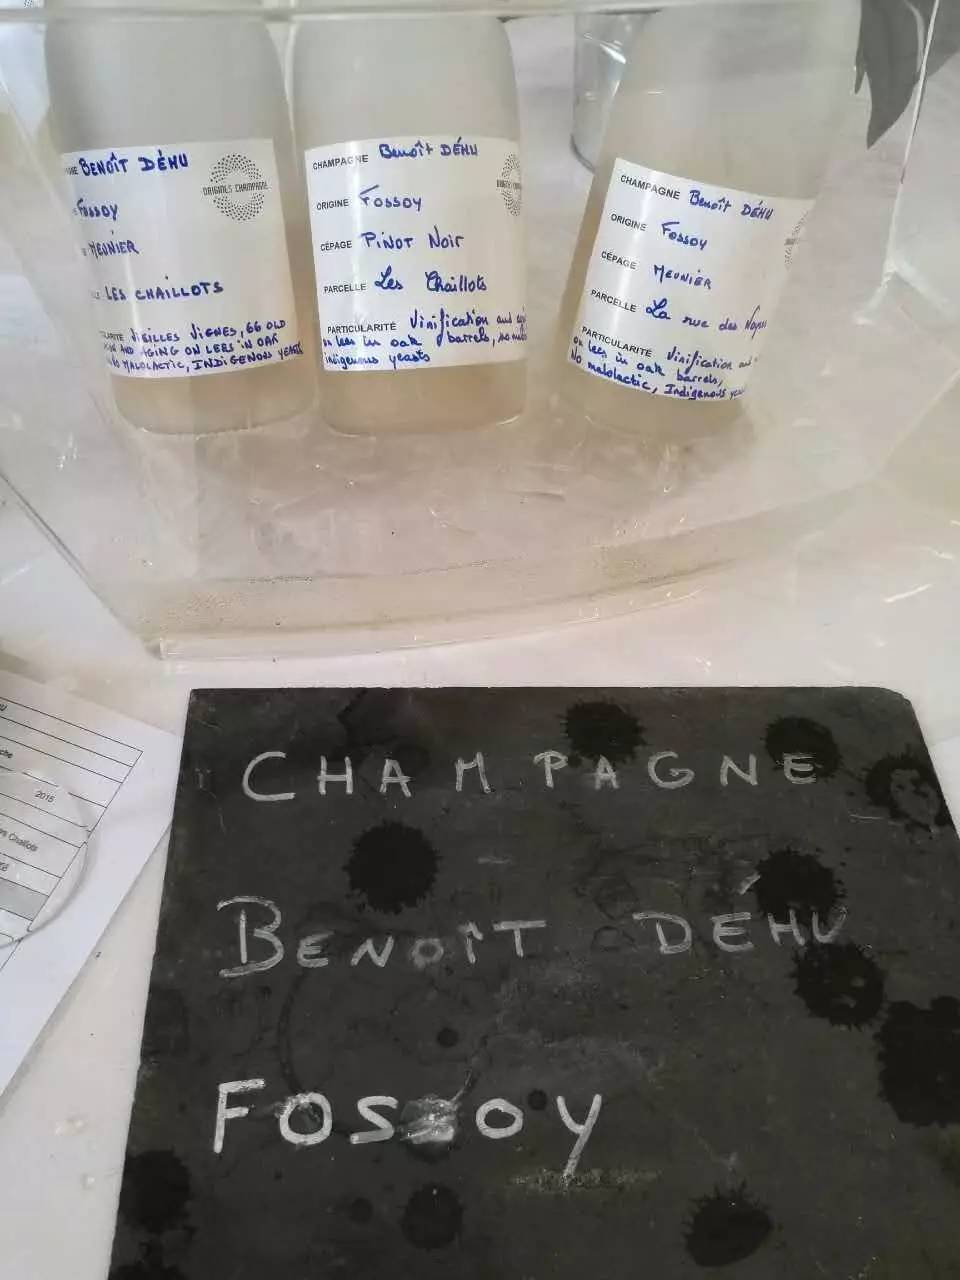 BENOÎT DÉHU
ORIGINES CHAMPAGNE
FOSSOY
MEUNIER
LES CHAILLOTS
VIEILLES VIGNES, 66 OLD
AND AGING ON LEES IN OAK
MALOLACTIC, INDIGENOUS YEASTS
CHAMPAGNE Benoît DÉHU
ORIGINE Fossoy
CÉPAGE PINOT NOIR
PARCELLE Les Chaillots
PARTICULARITÉ Vinification and
on lees in oak barrels, no
indigenous yeasts
CHAMPAGNE Benoît DÉHU
ORIGINE Fossoy
CÉPAGE MEUNIER
PARCELLE La rue des
PARTICULARITÉ Vinification and
on lees in oak barrels,
No malolactic, Indigenous
2015
Chaillots
CHAMPAGNE
BENOÎT DÉHU
FOSSOY